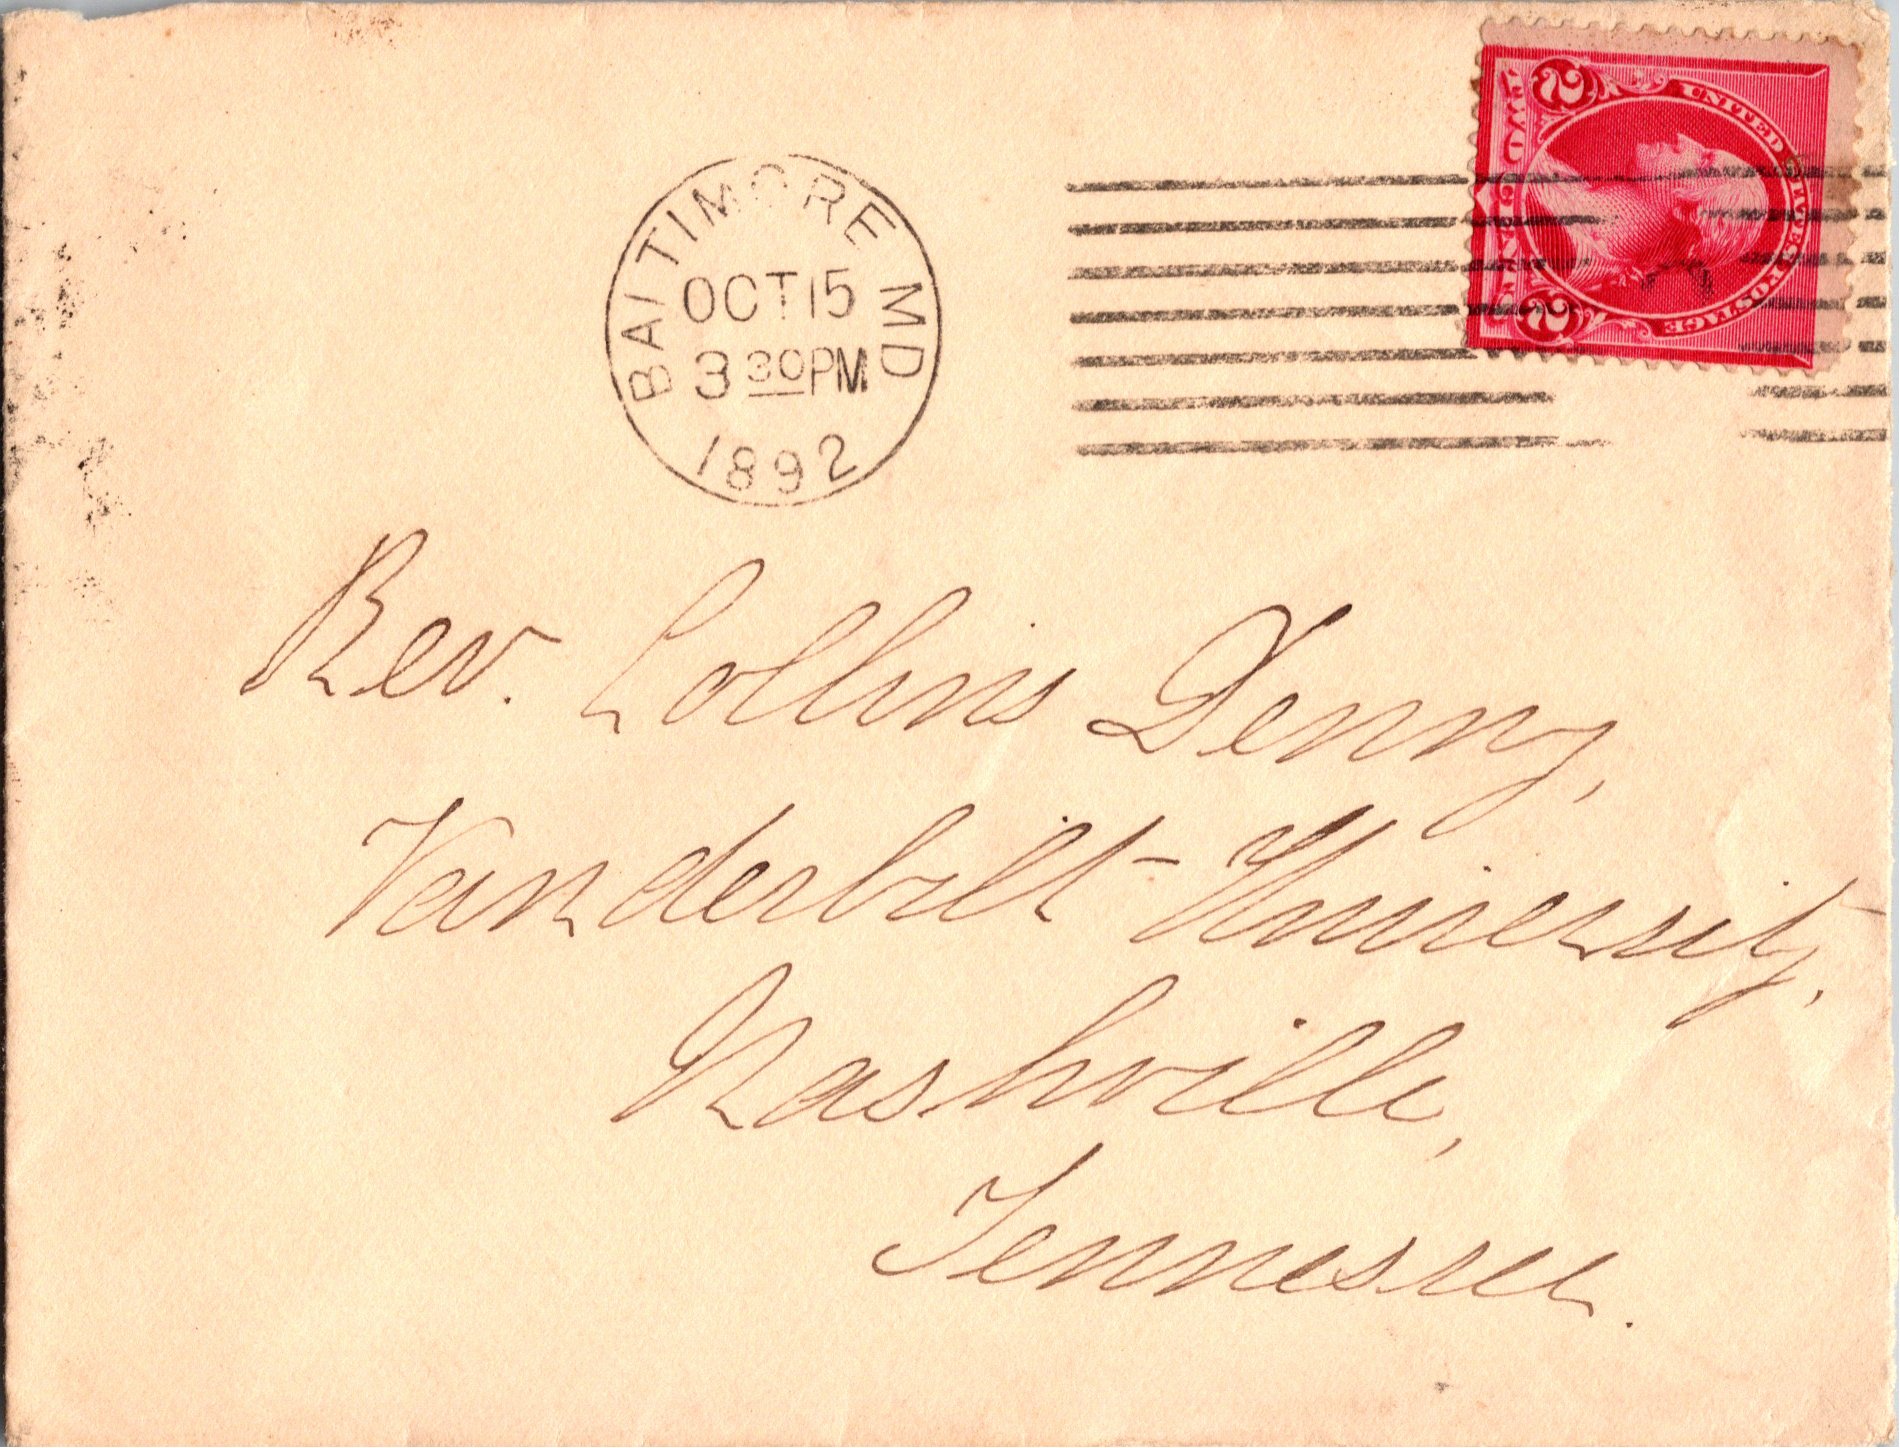 BALTIMORE MD
OCT 15
3 30 PM
1892
UNITED STATES POSTAGE
2 TWO CENTS 2
Rev. Collins Denny,
Vanderbilt University,
Nashville,
Tennessee.